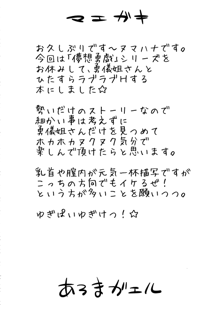 マエガキ
お久しぶりです～ヌマハナです。
今回は「優想勇戯」シリーズを
お休みして、勇儀姐さんと
ひたすらラブラブHする
本にしました☆
勢いだけのストーリーなので
細かい事は考えずに
勇儀姐さんだけを見つめて
ホカホカヌクヌク気分で
楽しんで頂けたらと思います。
乳首や膣内が元気一杯描写ですが
こっちの方向でもイケるぜ!
という方が多いことを願いつつ。
ゆぎぱいゆぎけつ!☆
あるまガエル